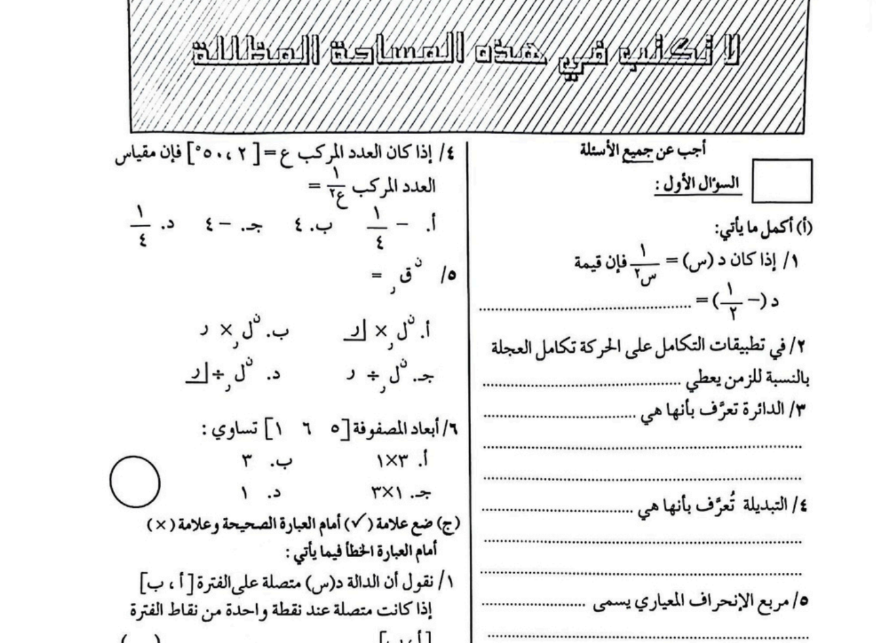 لا تكتب في هذه المساحة المظللة
أجب عن جميع الأسئلة
السؤال الأول :
(أ) أكمل ما يأتي:
١/ إذا كان د (س) = ١/س٢ فإن قيمة
د (− ١/٢) = ........................................
٢/ في تطبيقات التكامل على الحركة تكامل العجلة
بالنسبة للزمن يعطي ........................................
٣/ الدائرة تعرَّف بأنها هي ..............................
............................................................
............................................................
٤/ التبديلة تُعرَّف بأنها هي ..............................
............................................................
............................................................
٥/ مربع الإنحراف المعياري يسمى ....................
............................................................
٤/ إذا كان العدد المركب ع = [٢ ، ٥٠°] فإن مقياس
العدد المركب ١/ع٢ =
أ. − ١/٤ ب. ٤ جـ. −٤ د. ١/٤
٥/ نقر =
أ. نلر × ر⌋ ب. نلر × ر
جـ. نلر ÷ ر د. نلر ÷ ر⌋
٦/ أبعاد المصفوفة [٥ ٦ ١] تساوي :
أ. ٣×١ ب. ٣
جـ. ١×٣ د. ١
(ج) ضع علامة (✓) أمام العبارة الصحيحة وعلامة (×)
أمام العبارة الخطأ فيما يأتي :
١/ نقول أن الدالة د(س) متصلة على الفترة [أ ، ب]
إذا كانت متصلة عند نقطة واحدة من نقاط الفترة
[أ ، ب] ( )